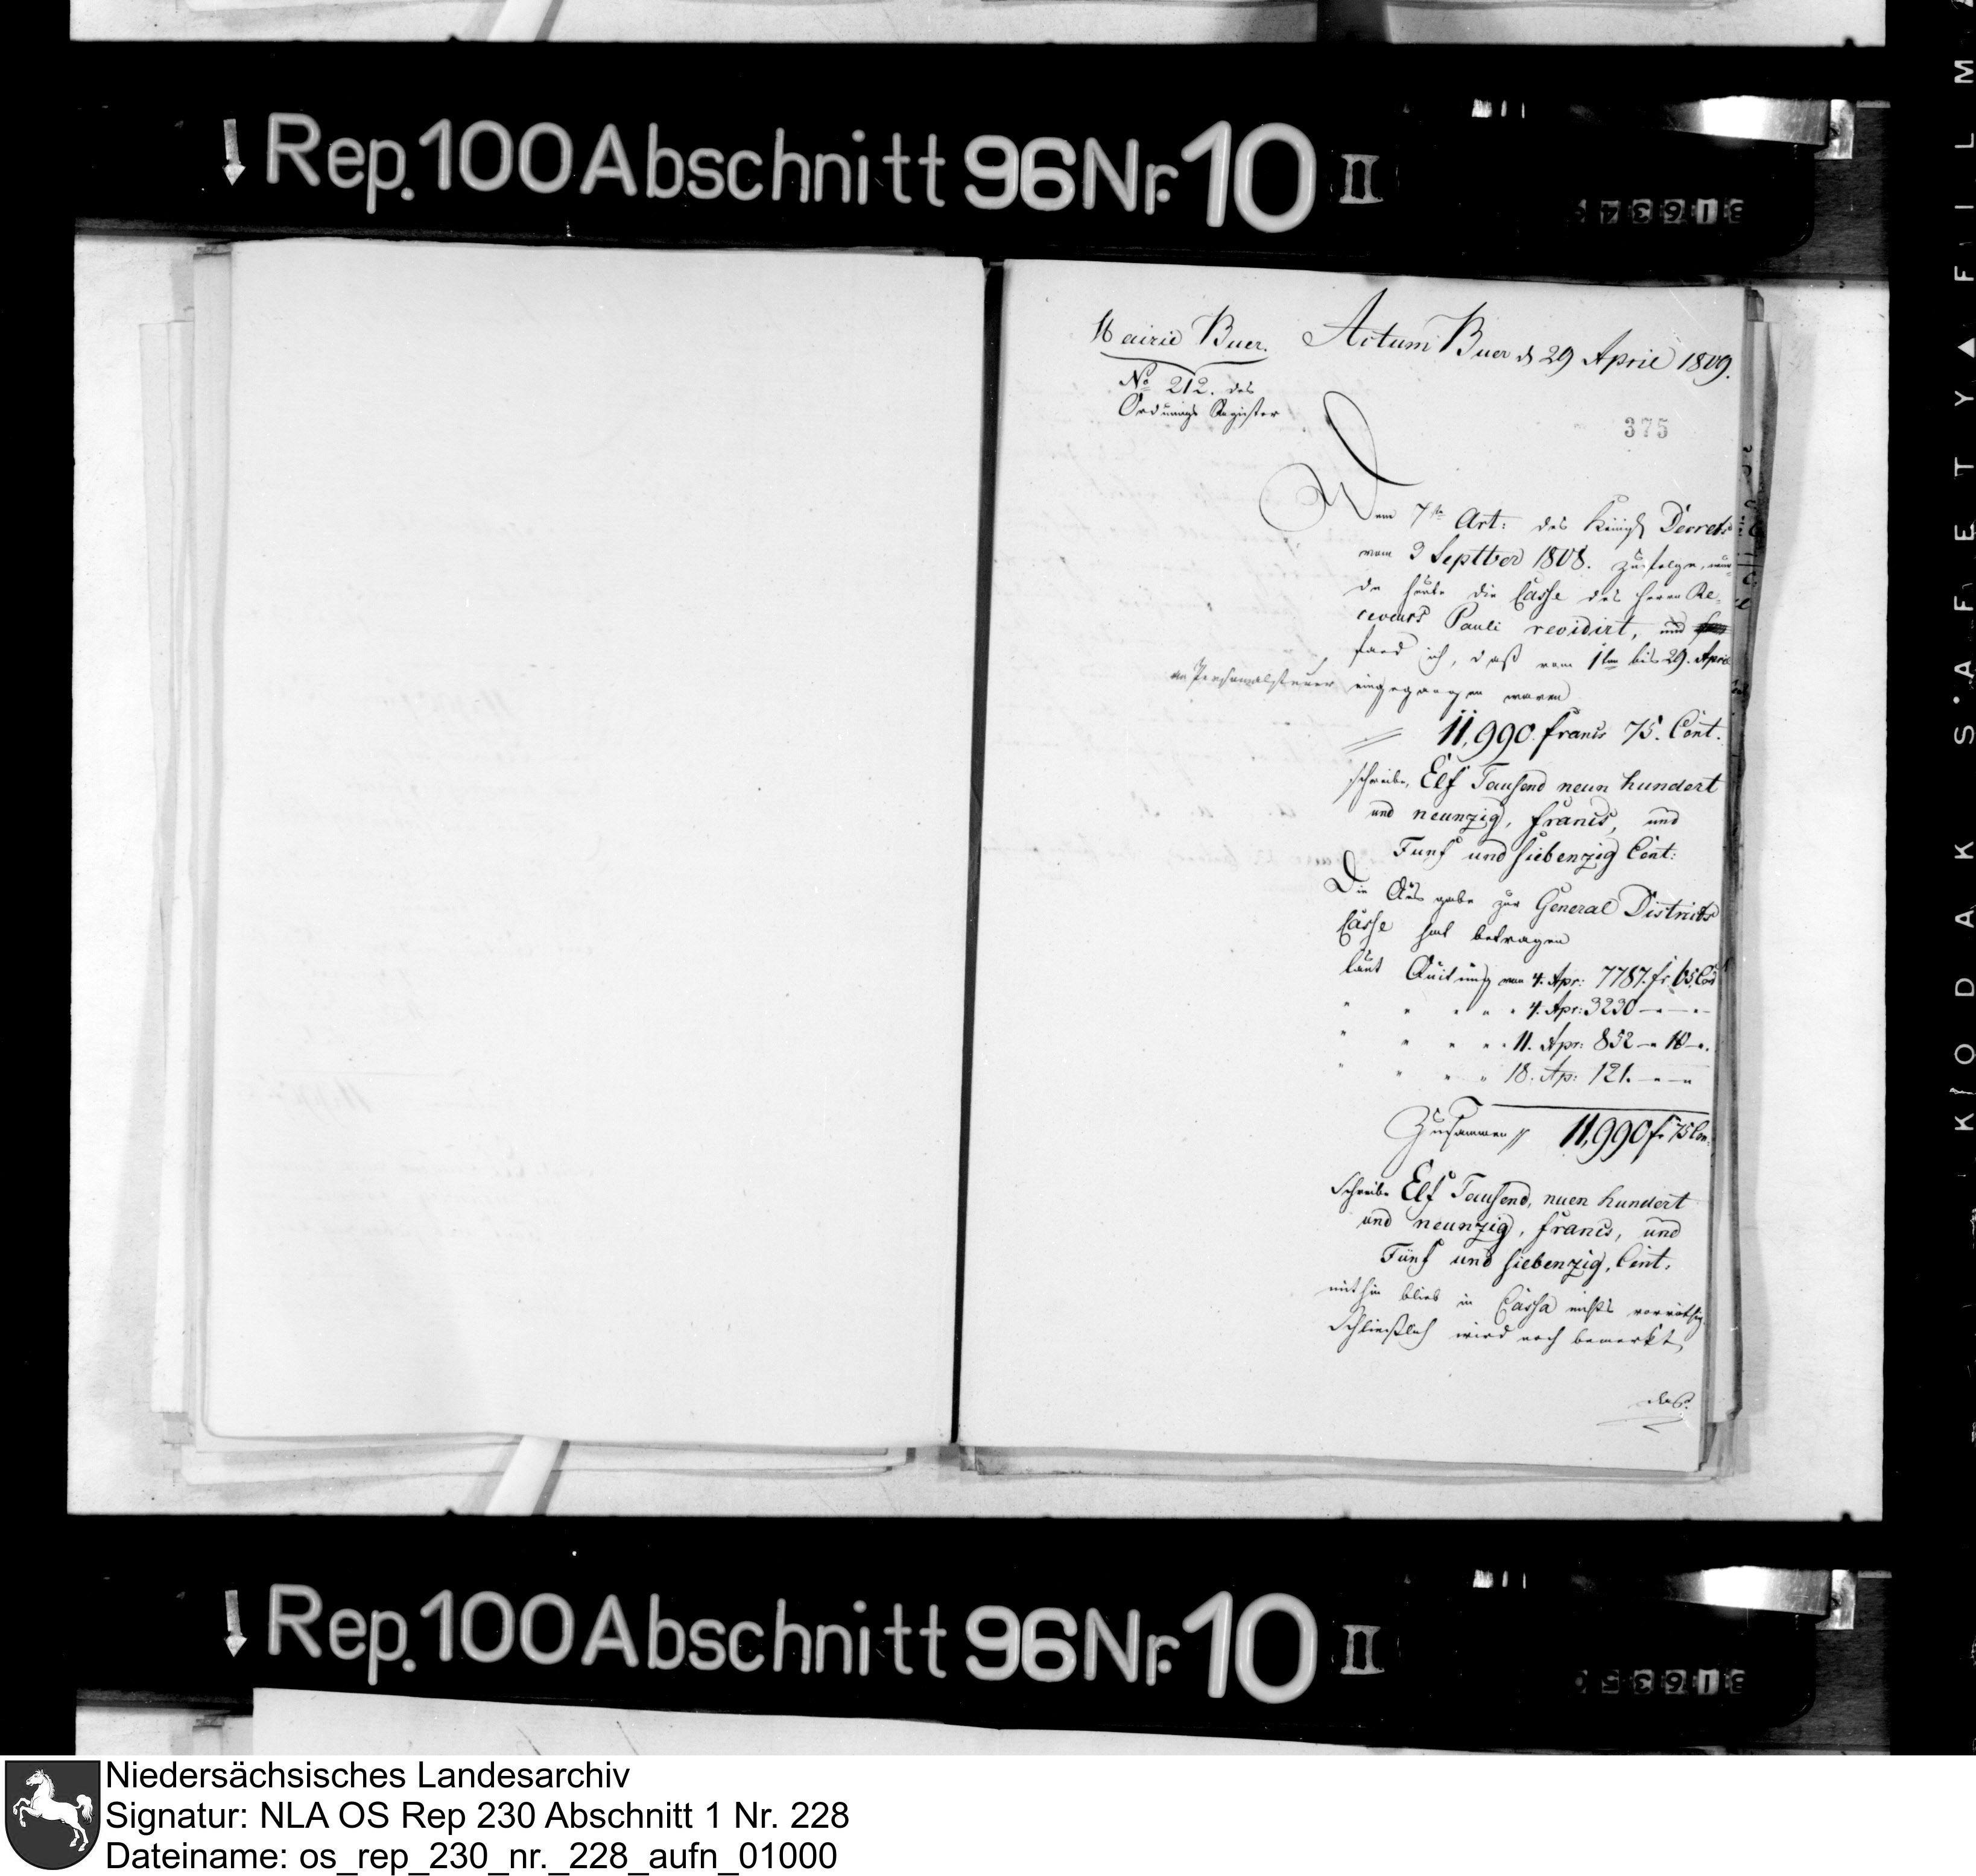 Rep. 100 Abschnitt 96 Nr. 10 II
Mairie Buer.
No 212. des
Ordnungs Register
Actum Buer d 29 April 1809.
375
Dem 7ten Art: des Königl Decrets
vom 3 Septber 1808. zufolge, wur-
de heute die Casse des Herrn Re-
ceveurs Pauli revidirt, und
fand ich, daß vom 1ten bis 29. April
an Personalsteuer eingegangen waren
11,990 francs 75. Cent.
schreibe, Elf Tausend neun hundert
und neunzig, francs, und
Funf und siebenzig Cent:
Die Ausgabe zur General Districts
Casse hat betragen
laut Quitung vom 4. Apr: 7787. fr 65 Cent
" " " " " 4. Apr: 3230 — " — " —
" " " " " 11. Apr: 852 — " 10 — "
" " " " 18. Ap: 121. — " — "
Zusammen 11,990 fr 75 Cen.
schreibe Elf Tausend, nuen hundert
und neunzig, francs, und
Fünf und siebenzig, Cent.
mithin blieb in Cassa nichts vorräthig
Schließlich wird noch bemerkt,
daß.
Rep. 100 Abschnitt 96 Nr. 10 II
KODAK SAFETY FILM
Niedersächsisches Landesarchiv
Signatur: NLA OS Rep 230 Abschnitt 1 Nr. 228
Dateiname: os_rep_230_nr._228_aufn_01000